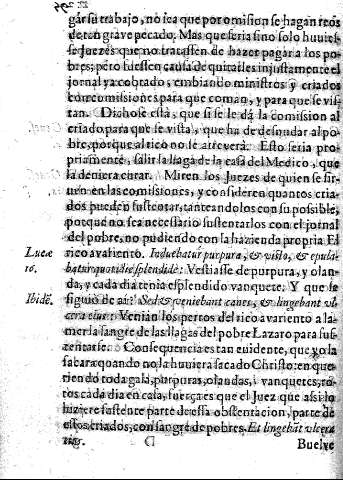 gar su trabajo, no sea que por omision se hagan reos
de tan graue pecado: Mas que seria si no solo huuiesse
se Juezes que no tratassen de hazer pagar a los po-
bres; pero fuessen causa de quitarles injustamente el
jornal ya cobrado, embiando ministros y criados
con comissiones para que coman, y para que se vis-
tan. Dicho se està, que si se le dà la comission al
criado para que se vista, que ha de desnudar al po-
bre, porque al rico no se atreverà. Esto seria pro-
priamente, salir la llaga de la casa del Medico, que
la deuiera curar. Miren los Juezes de quien se sir-
uen en las comissiones, y consideren quantos cria-
dos pueden sustentar, tanteandolos con su possible,
porque no sea necessario sustentarlos con el jornal
del pobre, no pudiendo con la hazienda propria. El
Lucæ rico avariento. Induebatur purpura, & visso, & epula-
16. batur quotidie splendide: Vestiasse de purpura, y olan-
da, y cada dia tenia esplendido vanquete. Y que se
Ibidē. siguiò de ai? Sed & veniebant canes, & lingebant vl-
cera eius: Venian los perros del rico avariento a la-
mer la sangre de las llagas del pobre Lazaro para sus-
tentarse. Consequencia es tan euidente, que yo la
sacara quando no la huuiera sacado Christo: en que-
riendo toda gala, purpuras, olandas, i vanquetes, ro-
tos cada dia en casa, fuerça es que el Juez que assi lo
hiziere sustente parte de essa obstentacion, parte de
estos criados, con sangre de pobres. Et lingebāt vlcera
eius. D Buelve